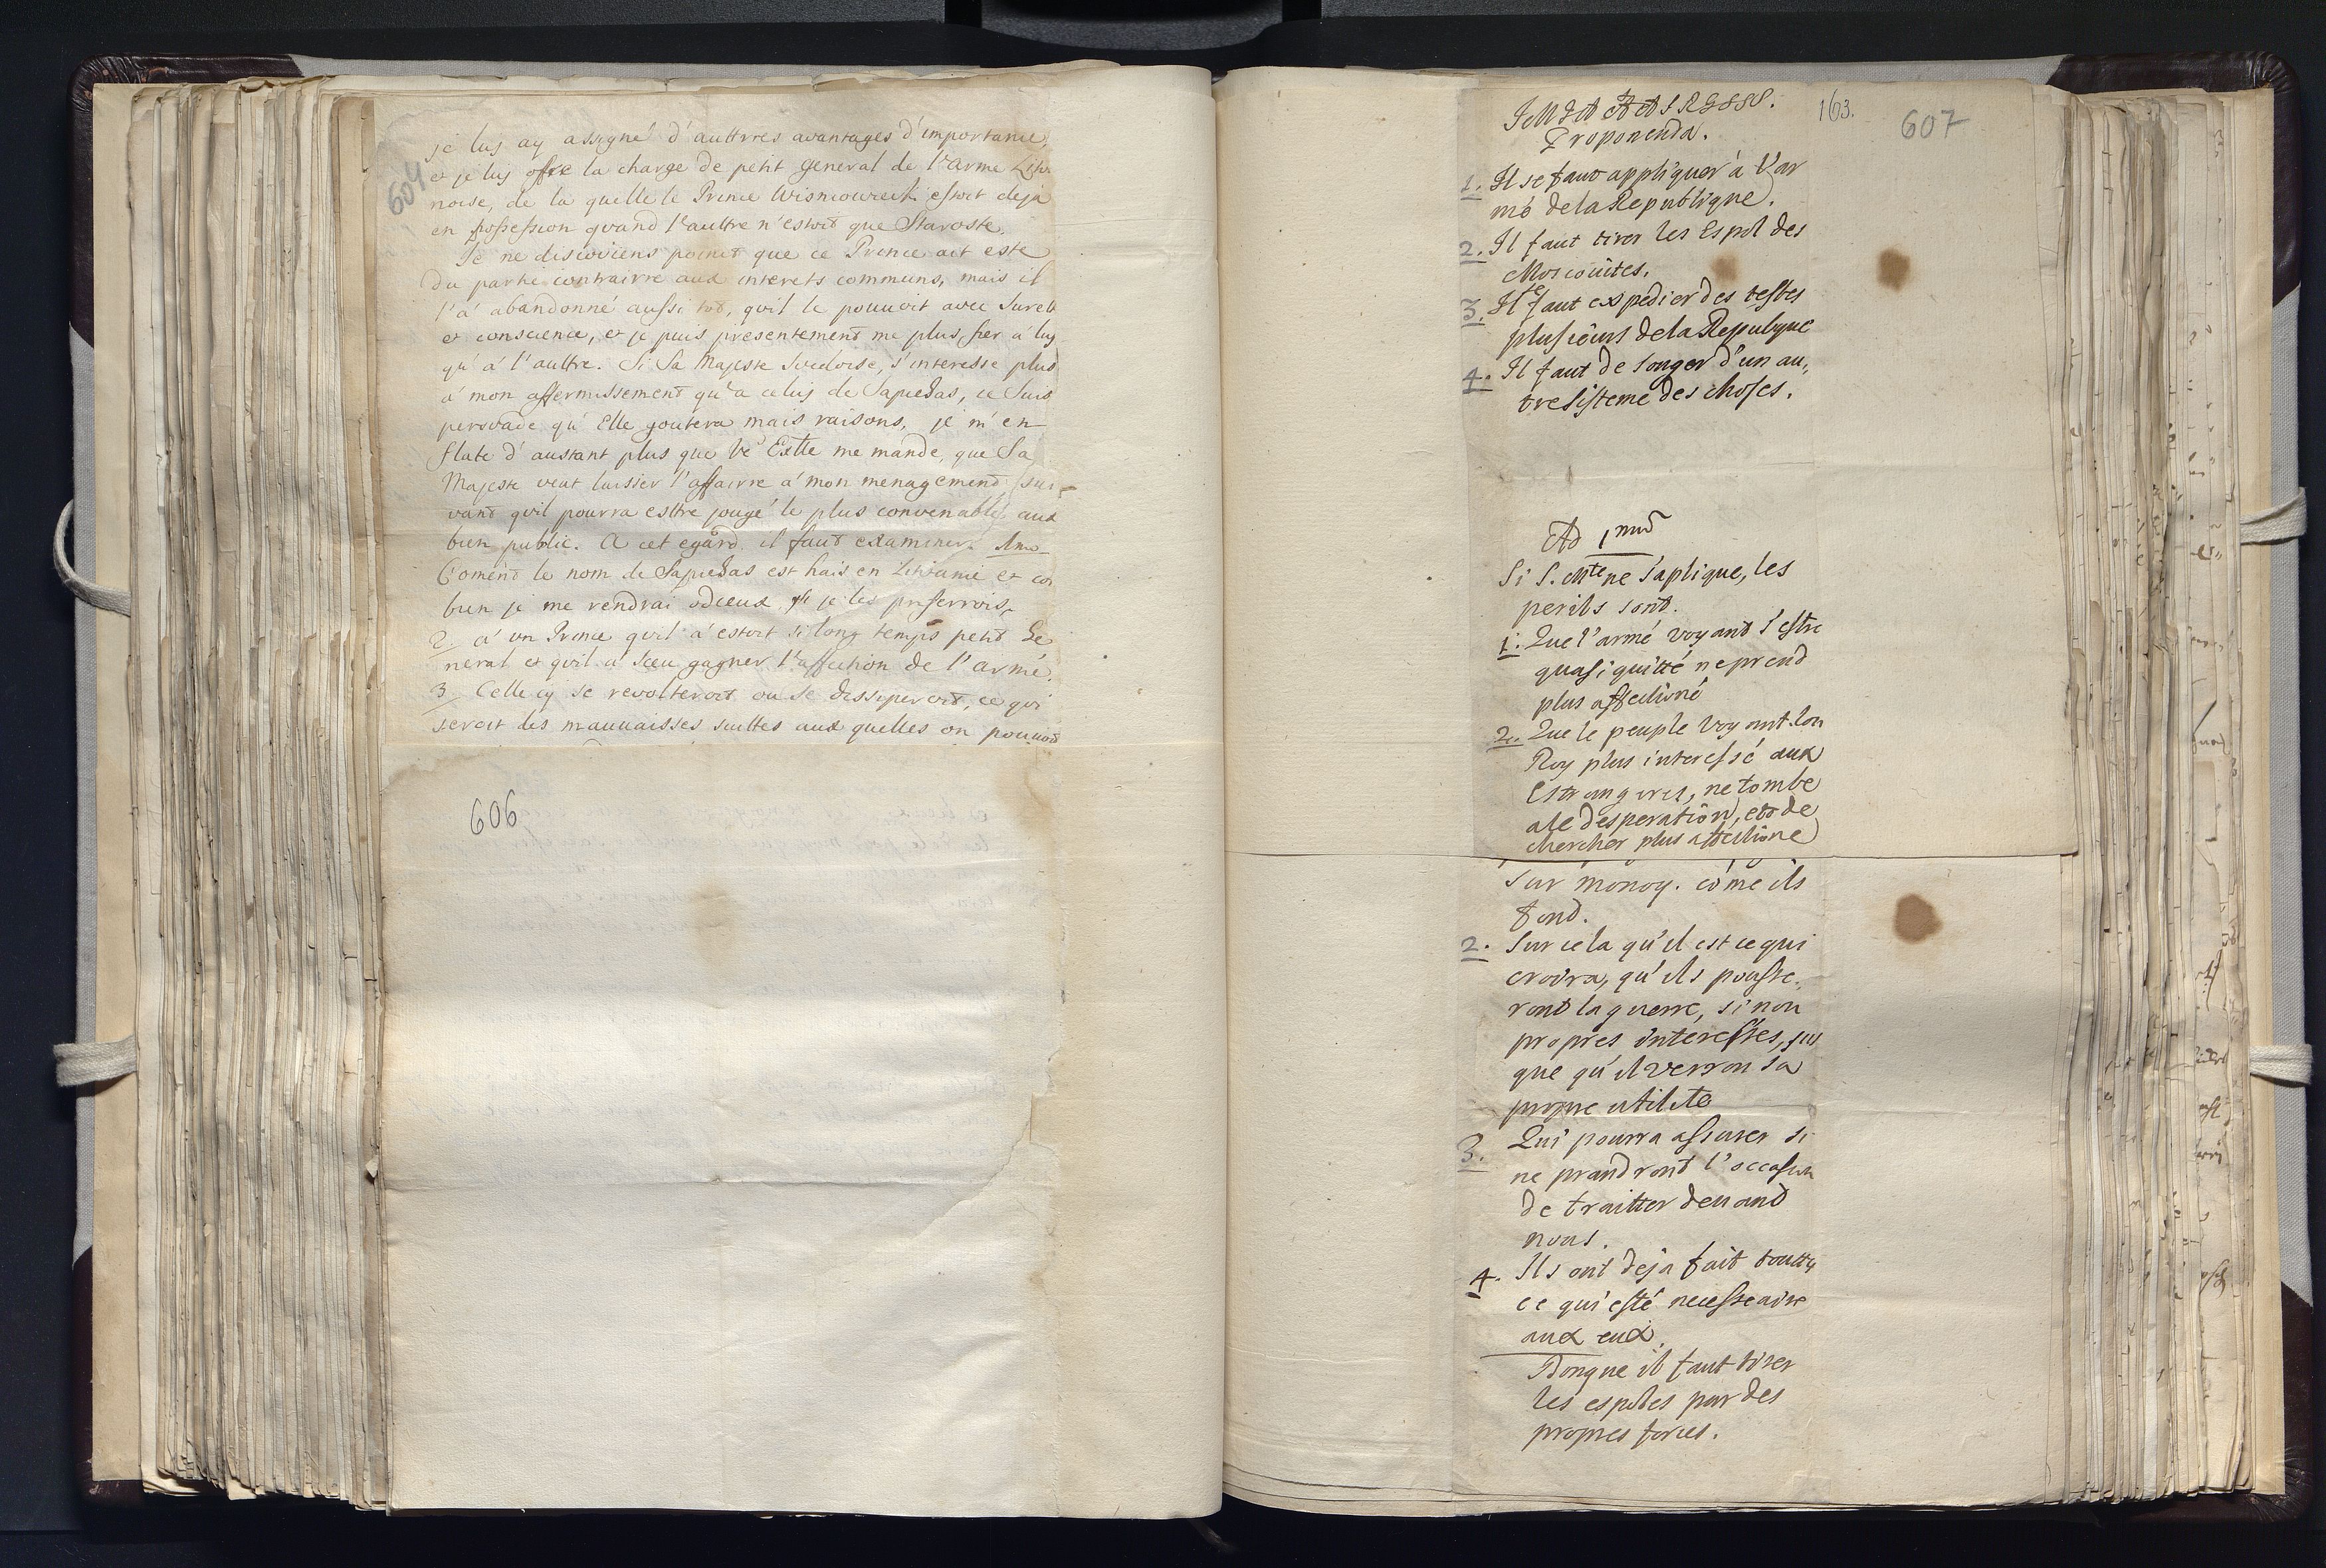 604
je luy ay assigné d'auttres avantages d'importance,
et je luy offre la charge de petit general de l'arme Lithu
noise, de la quelle le Prince Wisniowiecki estoit deja
en possession quand l'aultre n'estoit que Staroste.
Je ne disconviens point que ce Prince ait este
du parti contraire aux interets communs, mais il
l'a abandonné aussi tot, qu'il le pouvoit avec surete
et conscience, et je puis presentement me plus fier a luy
qu'a l'aultre. Si Sa Majeste Suedoise, s'interesse plus
a mon affermissement qu'a celuy de Sapiehas, je suis
persuade qu'Elle goutera mais raisons, je m'en
flate d'austant plus que Vre Exlle me mande, que Sa
Majeste veut laisser l'affairre a mon menagement sui-
vant qu'il pourra esttre jougé le plus convenable aux
bien public. A cet egard il faut examiner. 1mo
Coment le nom de Sapiehas est hais en Lithuanie et com
bien je me rendrai odieux, si je les preferrois,
2. a un Prince qu'il a estoit si long temps petit Ge
neral et qu'il a sceu gagner l'affection de l'armé.
3. Celle cy se revolteroit ou se dissiperoit, ce qui
seroit des mauvaisses suittes aux quelles on pouvoit
606
163.
607
Proponenda.
1. Il se faut appliquer à l'ar
mé de la Republique.
2. Il faut tirer les Espol des
Moscouites.
3. Il faut expedier des testes
plusieurs de la Republique
4. Il faut de songer d'un au,
tre sisteme des choses.
Ad 1mum
Si S. Mte ne s'aplique, les
perils sont.
1. Que l'armé voyant s'estre
quasi quitté ne prend
plus affectioné
2. Que le peuple voyant son
Roy plus interessé aux
Estrangeres, ne tombe
a le desperation, et de
chercher plus affectione
sur monoy. come ils
font.
2. Sur cela qu'il est ce qui
croira, qu'ils pousse,
ront la guerre, si non
propres interesses, jus
que qu'il verron sa
propre utilite
3. Qui pourra assurer si
ne prandront l'occasion
de traitter devand
nous.
4. Ils ont deja fait toutte
ce qui esté necesseaire
aux eux.
Donque il faut tirer
les espoles par des
propres forces.